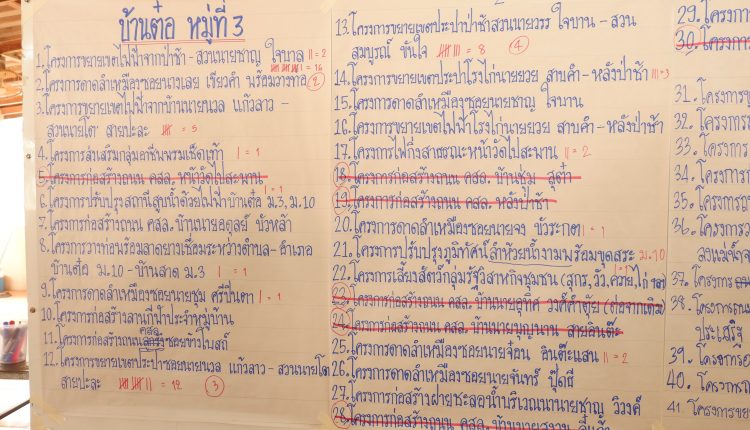 บ้านต๋อ หมู่ที่ 3
1. โครงการขยายเขตไฟฟ้าจากป่าช้า - สวนนายชาญ ใจบาล || = 2
2. โครงการดาดลำเหมืองซอยนางเลย เรียวคำ พร้อมวางท่อ = 14 (2)
3. โครงการขยายเขตไฟฟ้าจากบ้านนายนวล แก้วลาว -
สวนนายโต สายปะละ = 5
4. โครงการส่งเสริมกลุ่มอาชีพพรมเช็ดเท้า | = 1
5. โครงการก่อสร้างถนน คสล. หน้าวัดไปสะพาน
6. โครงการปรับปรุงสถานีสูบน้ำด้วยไฟฟ้าบ้านต๋อ ม.3, ม.10 | = 1
7. โครงการก่อสร้างถนน คสล. บ้านนายอดุลย์ บัวหล้า
8. โครงการวางท่อพร้อมลาดยางเชื่อมระหว่างตำบล - อำเภอ
บ้านต๋อ ม.10 - บ้านสาด ม.3 | = 1
9. โครงการดาดลำเหมืองซอยนายชุม ศรีปินตา | = 1
10. โครงการก่อสร้างลานกีฬาประจำหมู่บ้าน
11. โครงการก่อสร้างถนน คสล. ซอยข้างโบสถ์
12. โครงการขยายเขตประปาซอยนายนวล แก้วลาว - สวนนายโต
สายปะละ = 12 (3)
13. โครงการขยายเขตประปาป่าช้าสวนนายวรร ใจบาน - สวน
สมบูรณ์ ขันใจ = 8 (4)
14. โครงการขยายเขตประปาโรงไก่นายยวย สานคำ - หลังป่าช้า ||| = 3
15. โครงการดาดลำเหมืองซอยนายชาญ ใจบาน
16. โครงการขยายเขตไฟฟ้าโรงไก่นายยวย สานคำ - หลังป่าช้า
17. โครงการไฟกิ่งสาธารณะหน้าวัดไปสะพาน || = 2
18. โครงการก่อสร้างถนน คสล. บ้านชุ่ม สุต๋า
19. โครงการก่อสร้างถนน คสล. หลังป่าช้า
20. โครงการดาดลำเหมืองซอยนายจง บัวระกต | = 1
21. โครงการปรับปรุงภูมิทัศน์ลำห้วยน้ำงามพร้อมขุดสระ ม.10
22. โครงการเลี้ยงสัตว์กลุ่มรัฐวิสาหกิจชุมชน (สุกร, วัว, ควาย, ไก่ ฯลฯ) | = 1
23. โครงการก่อสร้างถนน คสล. บ้านนายสุทิศ วงศ์คำตุ้ย (ต่อจากเดิม)
24. โครงการก่อสร้างถนน คสล. บ้านนายบุญนาน สายอินต๊ะ
25. โครงการดาดลำเหมืองซอยนายจ๋อน อินต๊ะแสน || = 2
26. โครงการดาดลำเหมืองซอยนายจันทร์ ปุ๊ดธิ
27. โครงการก่อสร้างฝายชะลอน้ำบริเวณนานายชาญ วิวงค์
28. โครงการก่อสร้างถนน คสล. บ้านนาย
29. โครงการ
30. โครงการ
31. โครงการ
32. โครงการ
33. โครงการ
34. โครงการ
35. โครงการ
36. โครงการ
37. โครงการ
38. โครงการ
39. โครงการ
40. โครงการ
41. โครงการขยาย